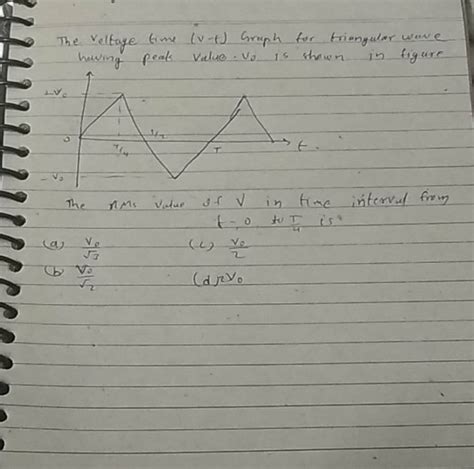 The Veltage time (v-t) Graph for triangular wave
having peak value - V0 is shown in figure
+V0
0
T/4
T/2
T
t
-V0
The rms value of V in time interval from
t = 0 to T/4 is
(a) V0/√3
(c) V0/2
(b) V0/√2
(d) 2V0